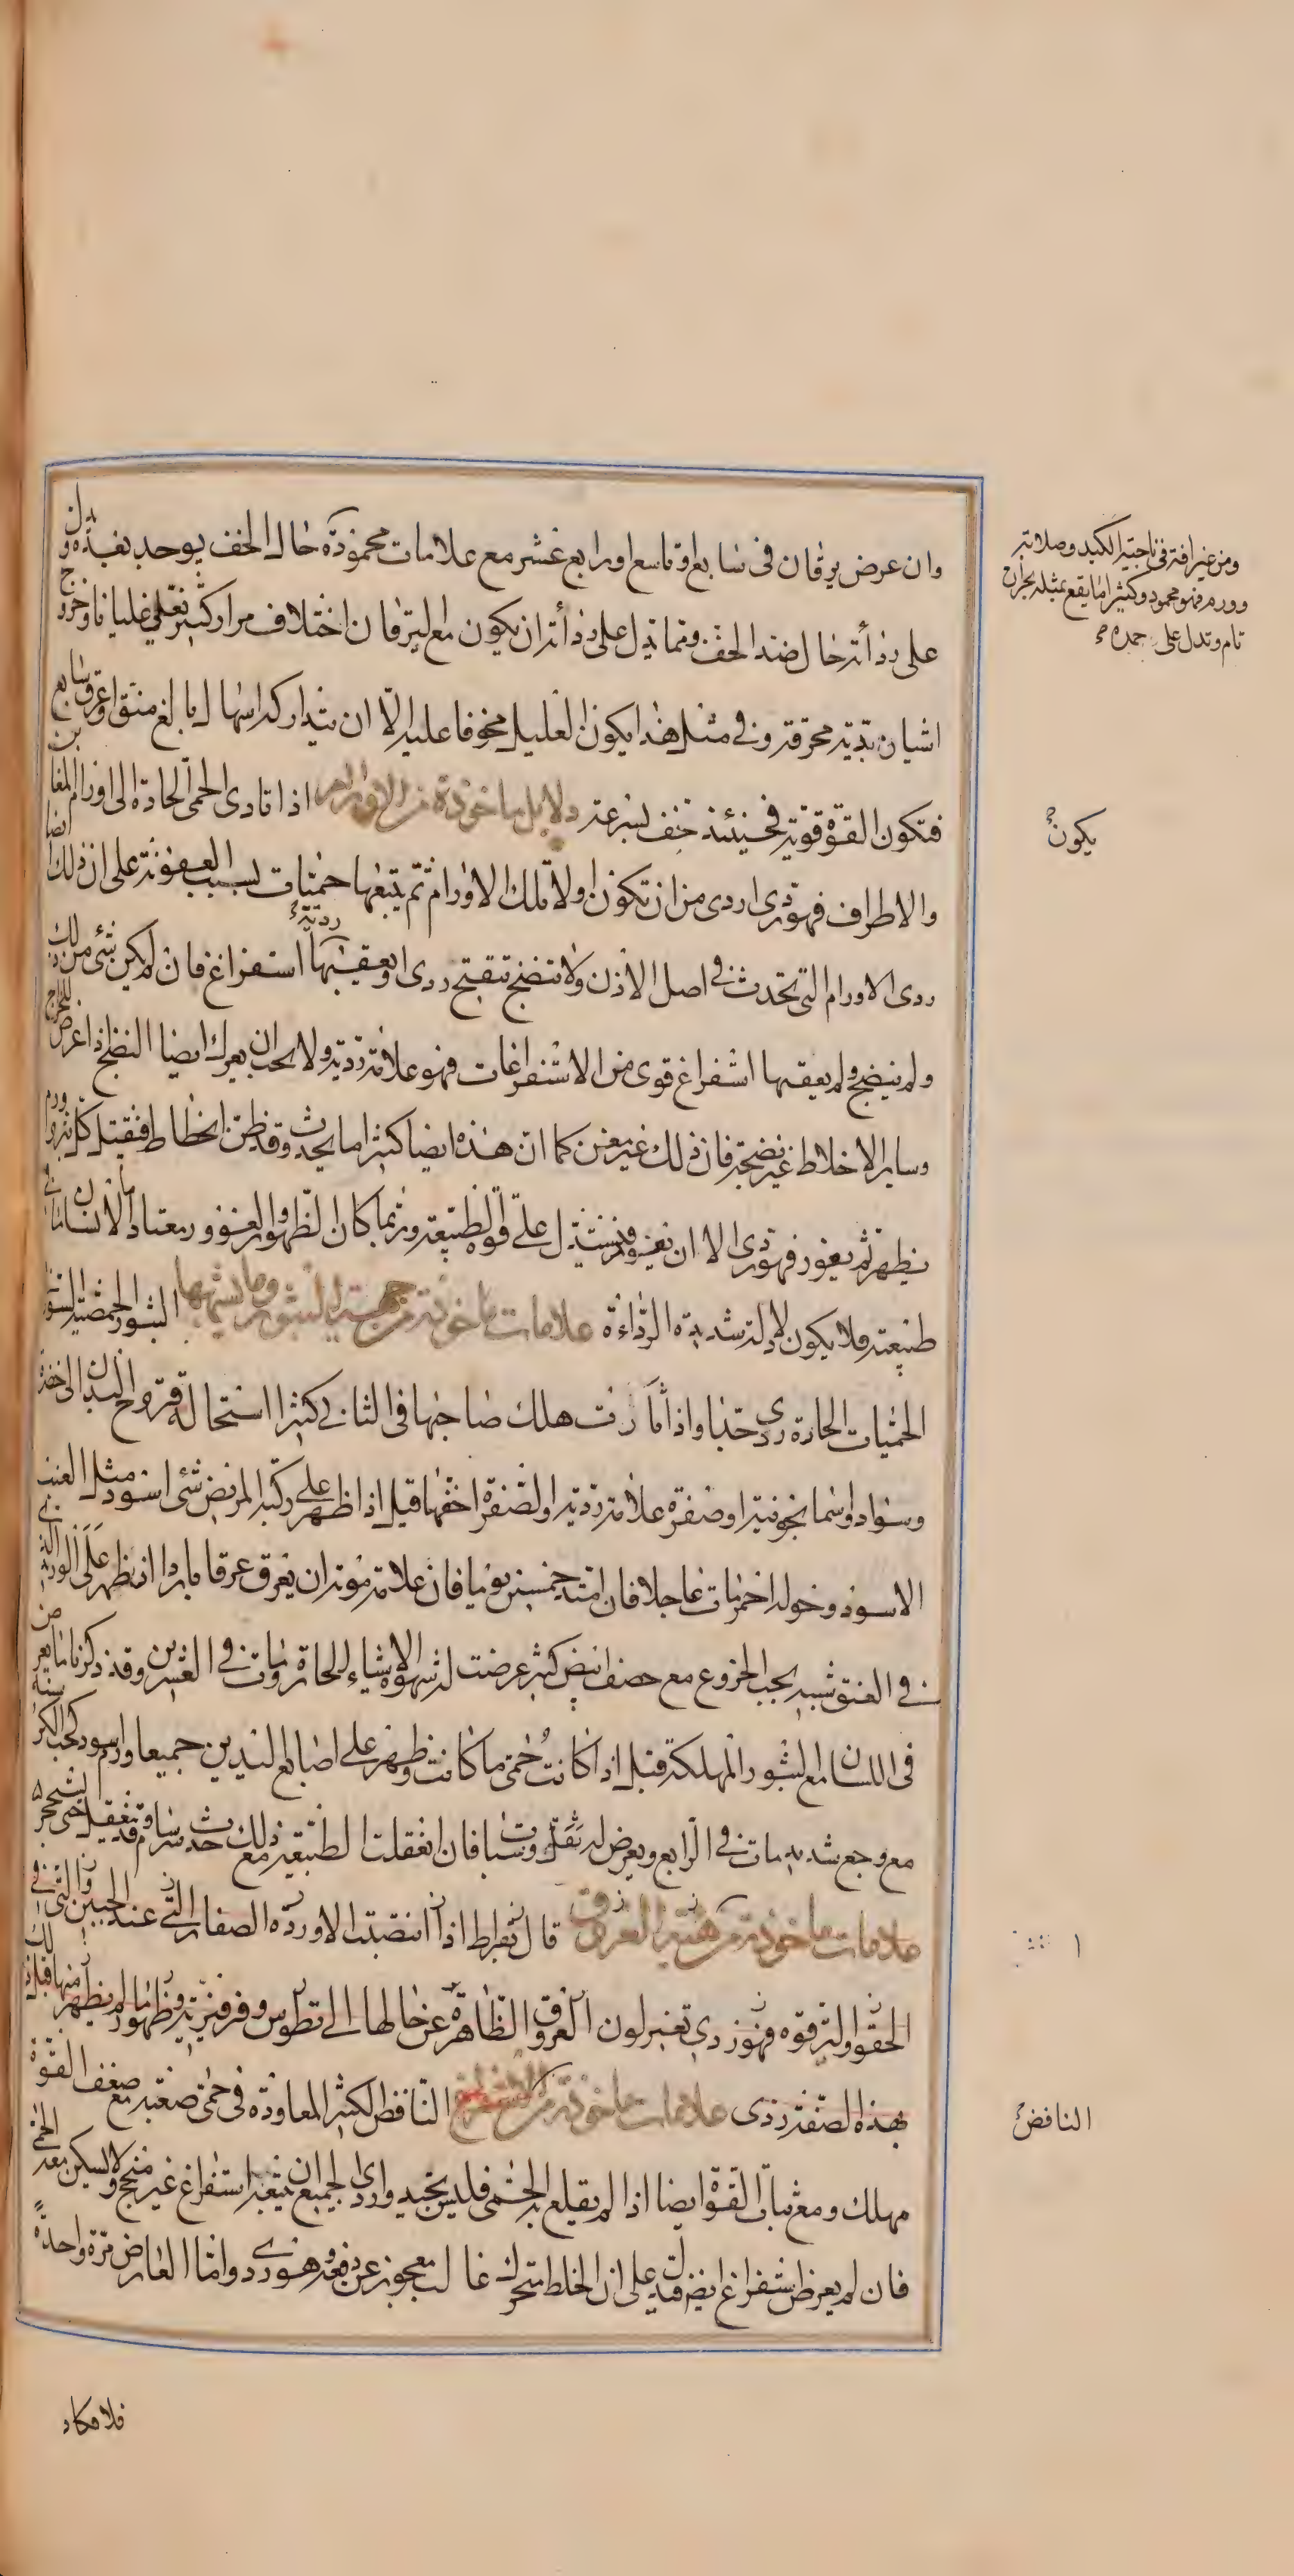 وان عرض يرقان فى سابع او تاسع او رابع عشر مع علامات محمودة حال الخف يوجد بعده ويدل
على رداءته حال ضد الخف ومما يدل على رداءته ان يكون مع اليرقان اختلاف مرار كثير يغلى غليانا وخروج
اشياء ردية محرقة وفى مثل هذا يكون العليل مخوفا عليه الا ان يتدارك اسهال بالغ منق او عرق سابغ
فتكون القوة قوية فحينئذ خف بسرعة دلايل ماخوذة من الاورام اذا تادى الحمى الحادة الى اورام المغابن
والاطراف فهو ردى اردى من ان تكون اولا تلك الاورام ثم يتبعها حميات بسبب العفونة على ان ذلك ايضا
ردى الاورام التى تحدث فى اصل الاذن ولا تنضج تتقيح ردى او يعقبها استفراغ فان لم يكن شئ من ذلك
ردية
ولم ينضج ولم يعقبها استفراغ قوى من الاستفراغات فهو علامة ردية ولا يجب ان يغرك ايضا النضج اذا عرض للخراج
وساير الاخلاط غير نضيجة فان ذلك غير مغن كما ان هذه ايضا كثيرا ما يحدث وقد ظن انحطاط فتقتل كل ورم
يظهر ثم يغور فهو ردى الا ان يعود فيستدل على قوة الطبيعة وربما كان الظهور والغوور معتادا لانسان ما فى
طبيعته فلا يكون لادلة شديدة الرداءة علامات ماخوذة من جهة البثور وما يشبهها البثور الحمصية السود فى
الحميات الحادة ردى جدا واذا تاكزت هلك صاحبها فى الثانى كثيرا استحالة قروح البدن الى خضرة
وسواد او سمانجونية او صفرة علامة ردية او الصفرة اخفها قيل اذا ظهر على ركبة المريض شئ اسود مثل العنب
الاسود وحوله احمر مات عاجلا فان امتد خمسين يوما فان علامة موته ان يعرق عرقا باردا اذا ظهر على الوريد الذى
فى العنق شبيه بحب الخروع مع حصف ابيض كثير عرضت له شهوة الاشياء الحارة ومات فى العشرين وقد ذكرنا ما يعرض
فى اللسان مع البثور المهلكة قيل اذا كانت حمى ما كانت وظهر على اصابع اليدين جميعا ورم اسود كحب الكرسنة
مع وجع شديد مات فى الرابع ويعرض له ثقل وسبات فان انعقلت الطبيعة مع ذلك حدث سرسام وقد تعقل حتى يتحجر
علامات ماخوذة من هيئة العروق قال بقراط اذا انتصبت الاوردة الصغار التى عند الجبين والتى فى
الحقو او الترقوة فهو ردى تغير لون العروق الظاهرة عن حالها الى تطوس وفرفيرية وظهور ما لم يظهر منها قبل ذلك
بهذه الصفة ردى علامات ماخوذة من النافض النافض الكثير المعاودة فى حمى صعبة مع ضعف القوة
مهلك ومع ثبات القوة ايضا اذا لم يقلع به الحمى فليس بجيد واردى الجميع ان يتبعه استفراغ غير منجح ولا يسكن معه الحمى
فان لم يعرض استفراغ ايضا فيدل على ان الخلط متحرك غالب معجوز عن دفعه وهو ردى واما العارض مرة واحدة
فلا مكاد
ومن غير افة فى ناحية الكبد وصلابته
وورم فهو محمود وكثيرا ما يقع بمثله بحران
تام وتدل على حمده
يكون
النافض